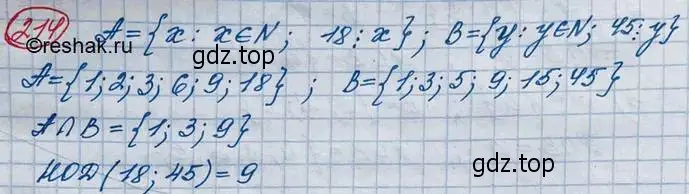 214 A={x: x∈N; 18⋮x}; B={y: y∈N; 45⋮y}
©reshak.ru
A={1; 2; 3; 6; 9; 18}; B={1; 3; 5; 9; 15; 45}
A∩B={1; 3; 9}
gdz.top
НОД(18; 45)=9
gdz.top
gdz.top